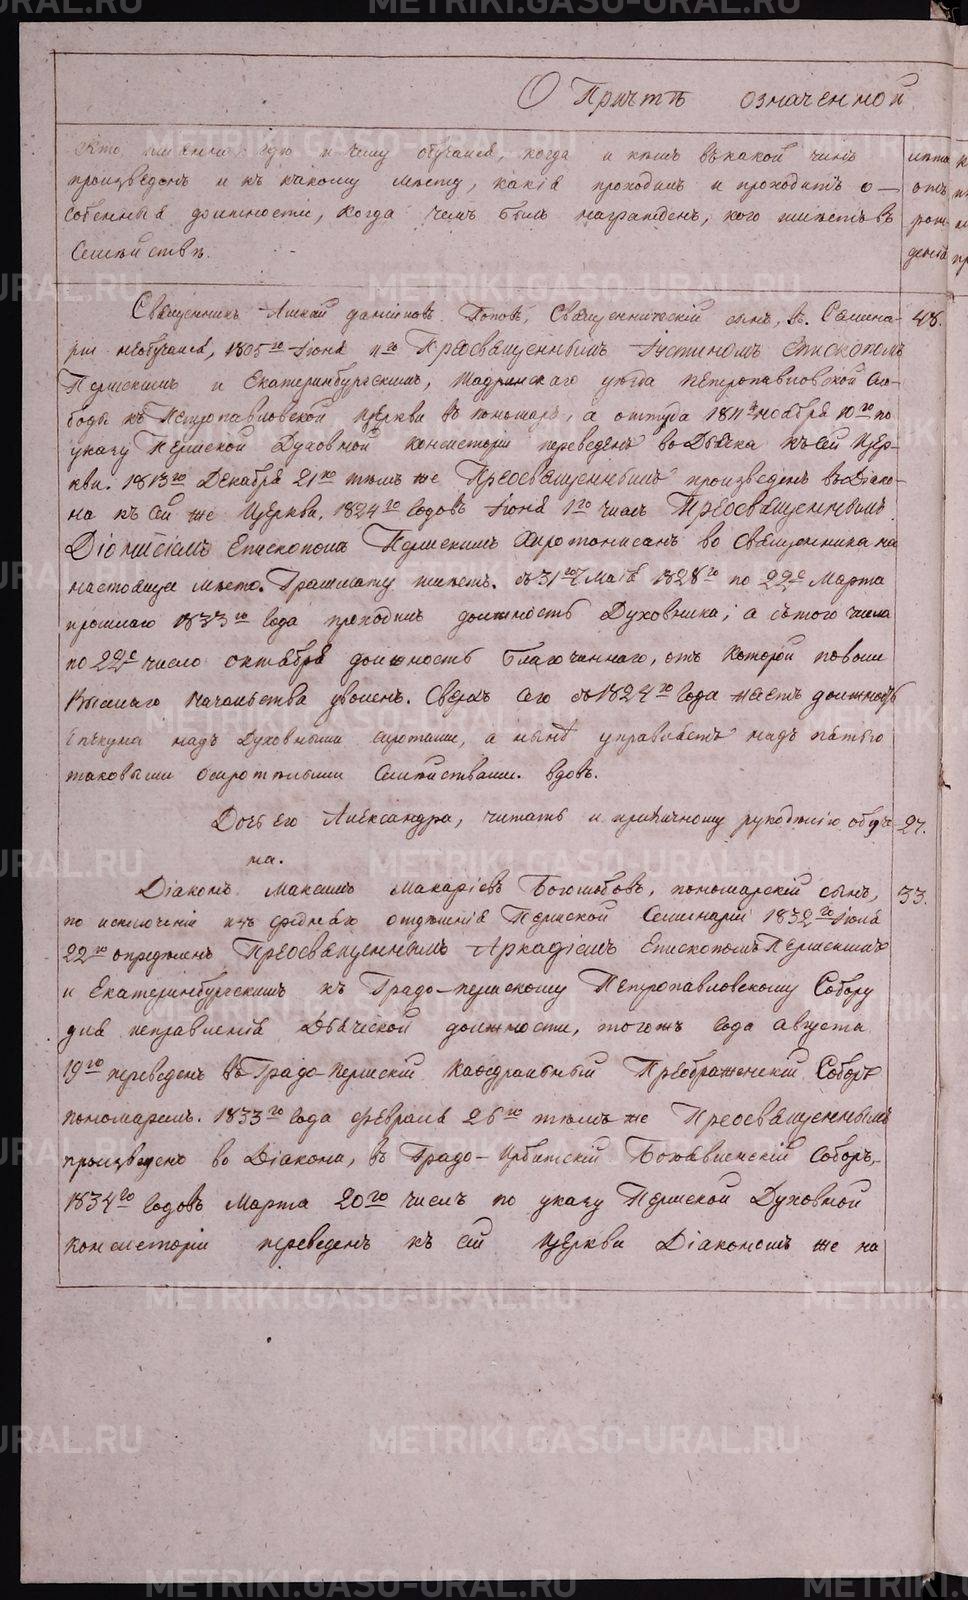 О Причтѣ означенной
Кто именно, гдѣ и чему обучался, когда и кѣмъ въ какой чинъ
произведенъ и къ какому мѣсту, какія проходилъ и проходитъ о-
собенныя должности, когда чемъ былъ награжденъ, кого имѣетъ въ
Семействѣ.
лѣта
отъ
рож-
денія
Священникъ Алексій Даніиловъ Поповъ, Священническій сынъ, въ Семина- 48.
ріи необучался, 1805го Іюня Преосвященнымъ Іустиномъ Епископомъ
Пермскимъ и Екатеринбургскимъ, Шадринскаго уѣзда Петропавловской Сло-
боды къ Петропавловской церкви въ пономаря, а оттуда 1811го ноября 10го по
указу Пермской Духовной Консисторіи переведенъ во Дьячка къ сей Цер-
кви. 1813го Декабря 21го тѣмъ же Преосвященнымъ произведенъ въ Діако-
на къ сей же Церкви, 1824го Годовъ Іюня 1го числ Преосвященнымъ
Діонисіемъ Епископомъ Пермскимъ Хиротонисанъ во Священника на
настоящее мѣсто. Граммату имѣетъ. съ 31го Маія 1828го по 22е Марта
прошлаго 1833го Года проходилъ должность Духовника; а съ того числа
по 22е число октября должность Благочиннаго, отъ Которой по воли
Высшаго Начальства уволенъ. Сверхъ сего съ 1824го Года имѣетъ должность
Опѣкуна надъ Духовными сиротами, а нынѣ управляетъ надъ пятью
таковыми осиротѣлыми Семействами. вдовъ.
Дочь его Александра, читать и приличному рукодѣлію обуче- 27.
на.
Діаконъ Максимъ Макаріевъ Боголюбовъ, пономарскій сынъ, 33.
по исключеніи изъ средняго отдѣленія Пермской Семинаріи 1832го Іюля
22го опредѣленъ Преосвященнымъ Аркадіемъ Епископомъ Пермскимъ
и Екатеринбургскимъ къ Градо-пермскому Петропавловскому Собору
для исправленія Дьяческой должности, тогожъ Года августа
19го переведенъ въ Градо-пермскій Каѳедральный Преображенскій Соборъ
пономаремъ. 1833го Года февраля 26го тѣмъ же Преосвященнымъ
произведенъ во Діакона, въ Градо-Ирбитскій Богоявленскій Соборъ,
1834го Годовъ Марта 20го числъ по указу Пермской Духовной
Консисторіи переведенъ къ сей церкви Діакономъ же на
METRIKI.GASO-URAL.RU